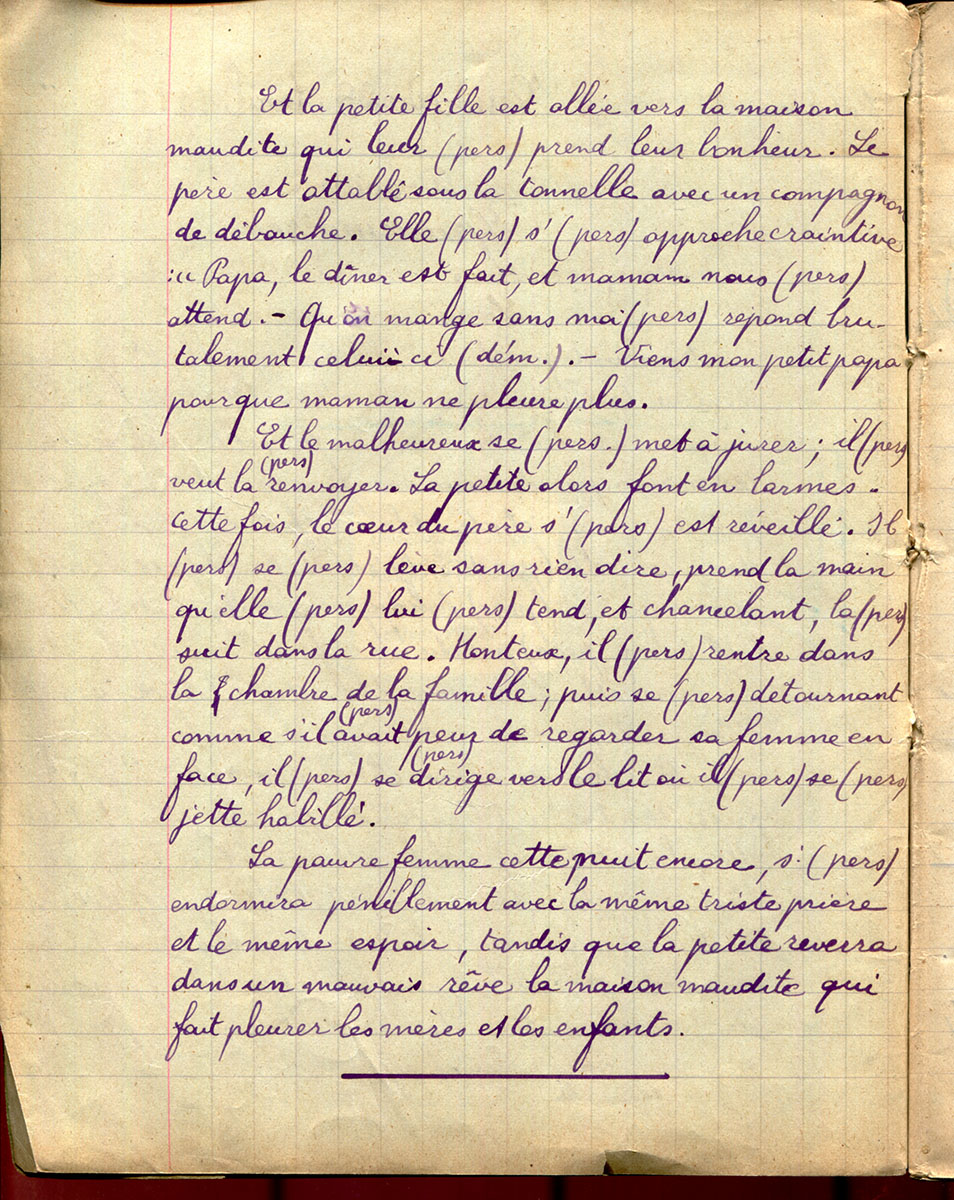 Et la petite fille est allée vers la maison
maudite qui leur (pers) prend leur bonheur. Le
père est attablé sous la tonnelle avec un compagnon
de débauche. Elle (pers) s' (pers) approche craintive
: « Papa, le dîner est fait, et mamam nous (pers)
attend. - Qu'on mange sans moi (pers) repond bru-
talement celui ci (dém.). - Viens mon petit papa
pour que maman ne pleure plus.
Et le malheureux se (pers.) met à jurer ; il (pers)
veut la (pers) renvoyer. La petite alors font en larmes.
Cette fois, le cœur du père s' (pers) est réveillé. Il
(pers) se (pers) lève sans rien dire, prend la main
qu'elle (pers) lui (pers) tend, et chancelant, la (pers)
suit dans la rue. Honteux, il (pers) rentre dans
la chambre de la famille ; puis se (pers) détournant
comme s'il (pers) avait peur de regarder sa femme en
face, il (pers) se (pers) dirige vers le lit où il (pers) se (pers)
jette habillé.
La pauvre femme cette nuit encore, s' (pers)
endormira pénillement avec la même triste prière
et le même espoir, tandis que la petite reverra
dans un mauvais rêve la maison maudite qui
fait pleurer les mères et les enfants.